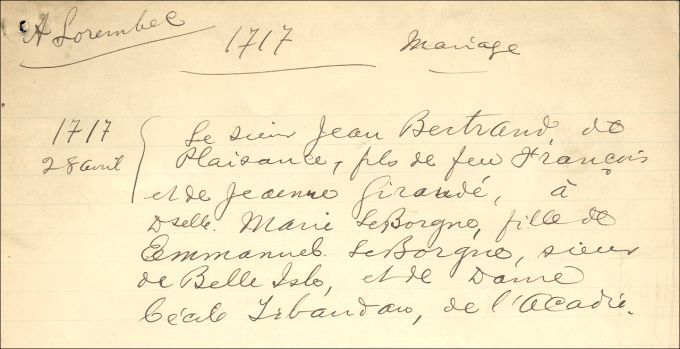 A Lorembec
1717
Mariage
1717
28 avril
Le sieur Jean Bertrand de
Plaisance, fils de feu François
et de Jeanne Giraudé, à
Dselle. Marie LeBorgne, fille de
Emmanuel LeBorgne, sieur
de Belle Isle, et de Dame
Cécile Tibaudau, de l'Acadie.